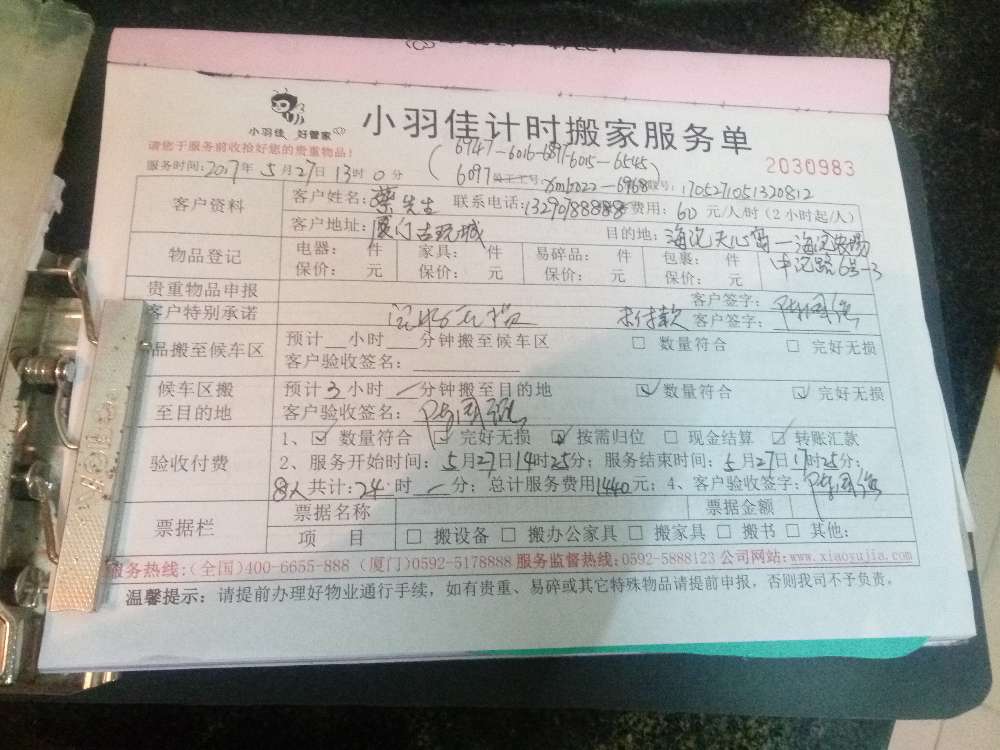 小羽佳 好管家
小羽佳计时搬家服务单
请您于服务前收拾好您的贵重物品!
2030983
(6947-6016-6891-6015-6545
服务时间:2017年5月27日13时0分 6097 员工工号: xm6022-6968) 1705271051320812
客户资料 客户姓名:蔡先生 联系电话:13290788888 费用:60元/人时(2小时起/人)
客户地址:厦门古玩城 目的地:海沧天心岛-海沧农场
中沧路6号-3
物品登记 电器: 件 家具: 件 易碎品: 件 包裹: 件
保价: 元 保价: 元 保价: 元 保价: 元
贵重物品申报 客户签字:
客户特别承诺 完好无损 未付款 客户签字:
品搬至候车区 预计 小时 分钟搬至候车区 □ 数量符合 □ 完好无损
客户验收签名:
候车区搬 预计3小时一分钟搬至目的地 ☑ 数量符合 ☑ 完好无损
至目的地 客户验收签名:
验收付费 1、☑ 数量符合 ☑ 完好无损 ☑ 按需归位 □ 现金结算 ☑ 转账汇款
2、服务开始时间:5月27日14时25分;服务结束时间:5月27日17时25分;
8人共计:24时一分;总计服务费用1440元;4、客户验收签字:
票据栏 票据名称 票据金额
项 目 □ 搬设备 □ 搬办公家具 □ 搬家具 □ 搬书 □ 其他:
服务热线:(全国)400-6655-888 (厦门)0592-5178888 服务监督热线:0592-5888123 公司网站:www.xiaoyujia.com
温馨提示:请提前办理好物业通行手续,如有贵重、易碎或其它特殊物品请提前申报,否则我司不予负责。